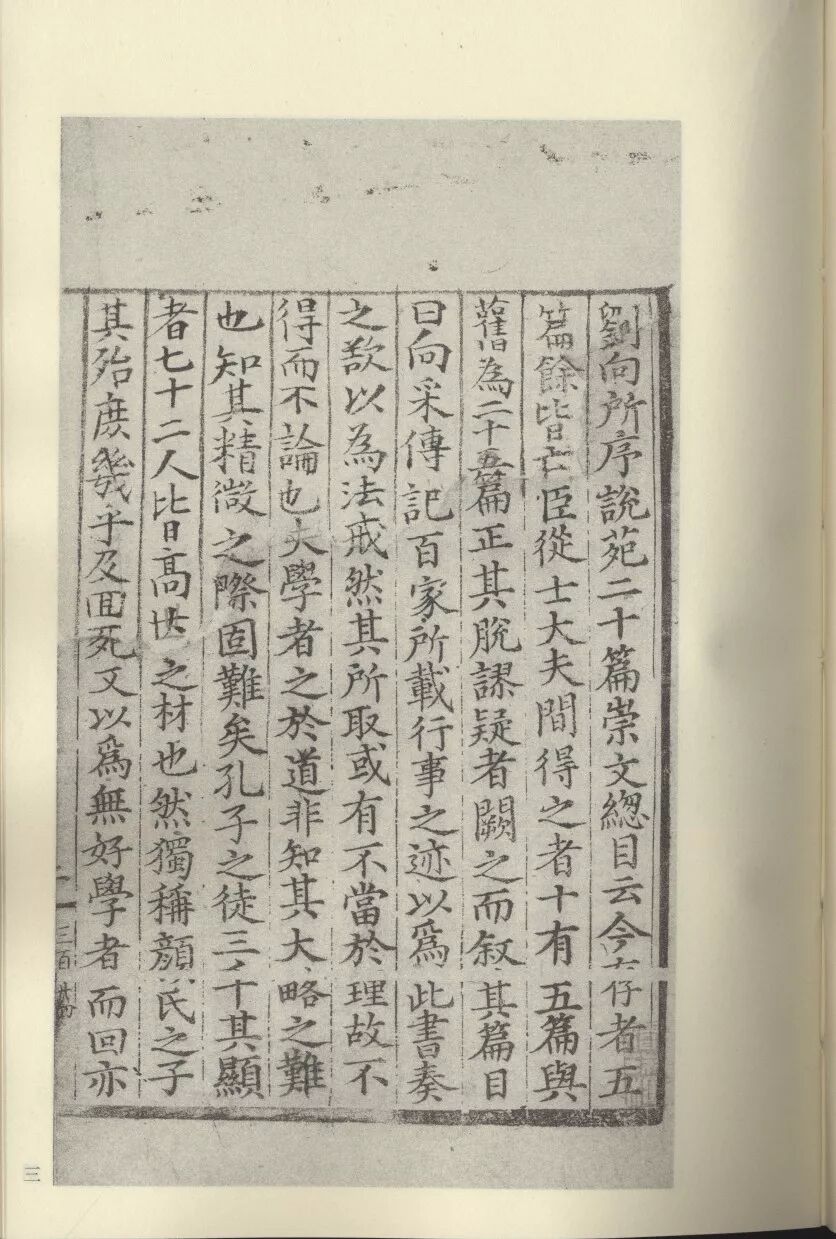 劉向所序說苑二十篇崇文總目云今存者五
篇餘皆亡臣從士大夫間得之者十有五篇與
舊為二十五篇正其脫謬疑者闕之而叙其篇目
曰向采傳記百家所載行事之迹以為此書奏
之欲以為法戒然其所取或有不當於理故不
得而不論也夫學者之於道非知其大略之難
也知其精微之際固難矣孔子之徒三千其顯
者七十二人皆高世之材也然獨稱顏氏之子
其殆庶幾乎及回死又以爲無好學者而回亦
三百
三